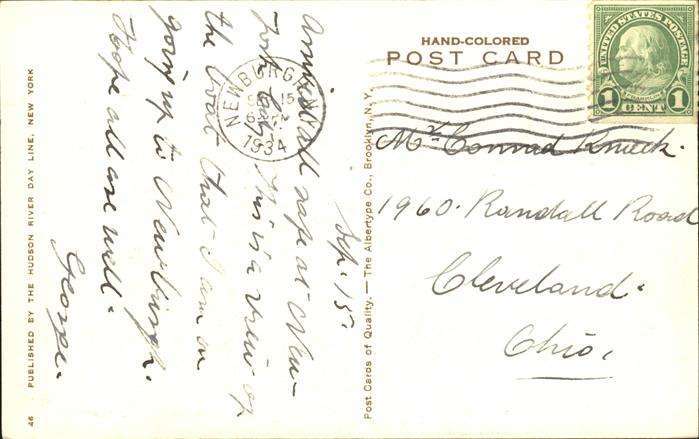 HAND-COLORED
POST CARD
UNITED STATES POSTAGE
FRANKLIN
1 CENT 1
NEWBURGH
15
6
1934
Mr. Conrad Knueck.
1960. Randall Road
Cleveland.
Ohio.
Sep. 15.
Arrived all safe at New-
York City. This is a view of
the boat that I am on
going up to Newburgh.
Hope all are well.
George.
Post Cards of Quality. — The Albertype Co., Brooklyn, N. Y.
46 PUBLISHED BY THE HUDSON RIVER DAY LINE, NEW YORK